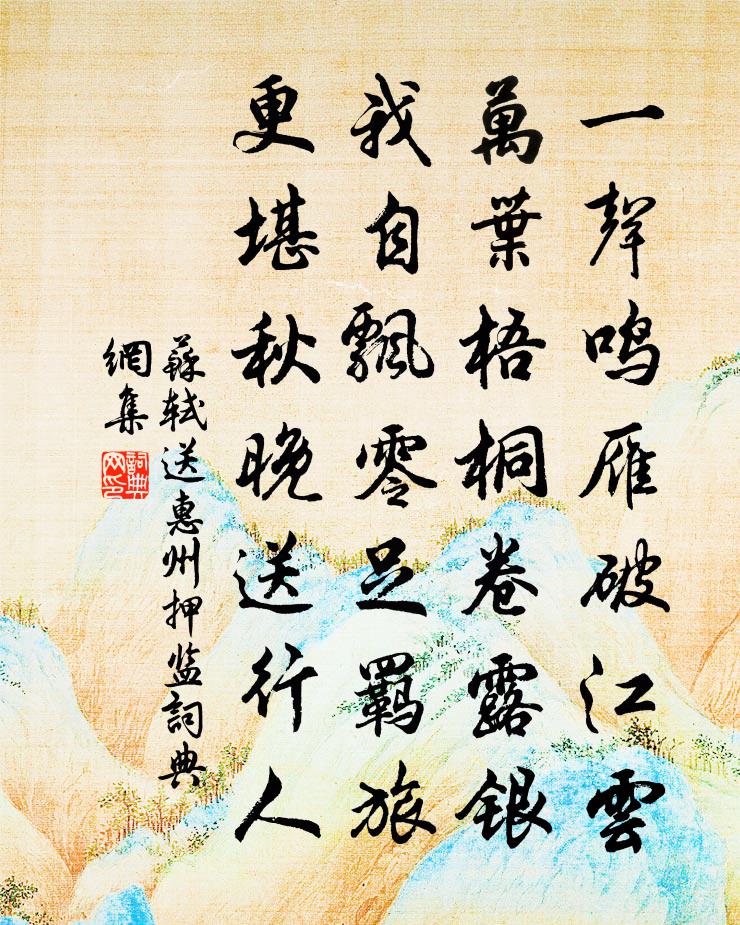 一聲鳴雁破江雲
萬葉梧桐卷露銀
我自飄零足羈旅
更堪秋晚送行人
蘇軾送惠州押监詞典
網集
詞典
网印